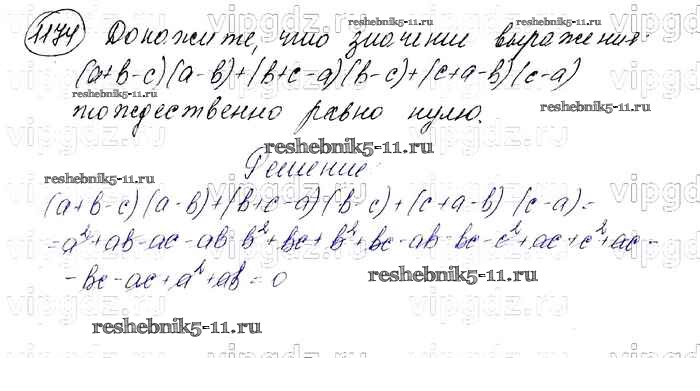 1174 Докажите, что значение выражения:
(a+b-c)(a-b)+(b+c-a)(b-c)+(c+a-b)(c-a)
тождественно равно нулю.
Решение:
(a+b-c)(a-b)+(b+c-a)(b-c)+(c+a-b)(c-a)=
=a²+ab-ac-ab-b²+bc+b²+bc-ab-bc-c²+ac+c²+ac-
-bc-ac+a²+ab=0
reshebnik5-11.ru
reshebnik5-11.ru
reshebnik5-11.ru
reshebnik5-11.ru
reshebnik5-11.ru
reshebnik5-11.ru
reshebnik5-11.ru
vipgdz.ru
vipgdz.ru
vipgdz.ru